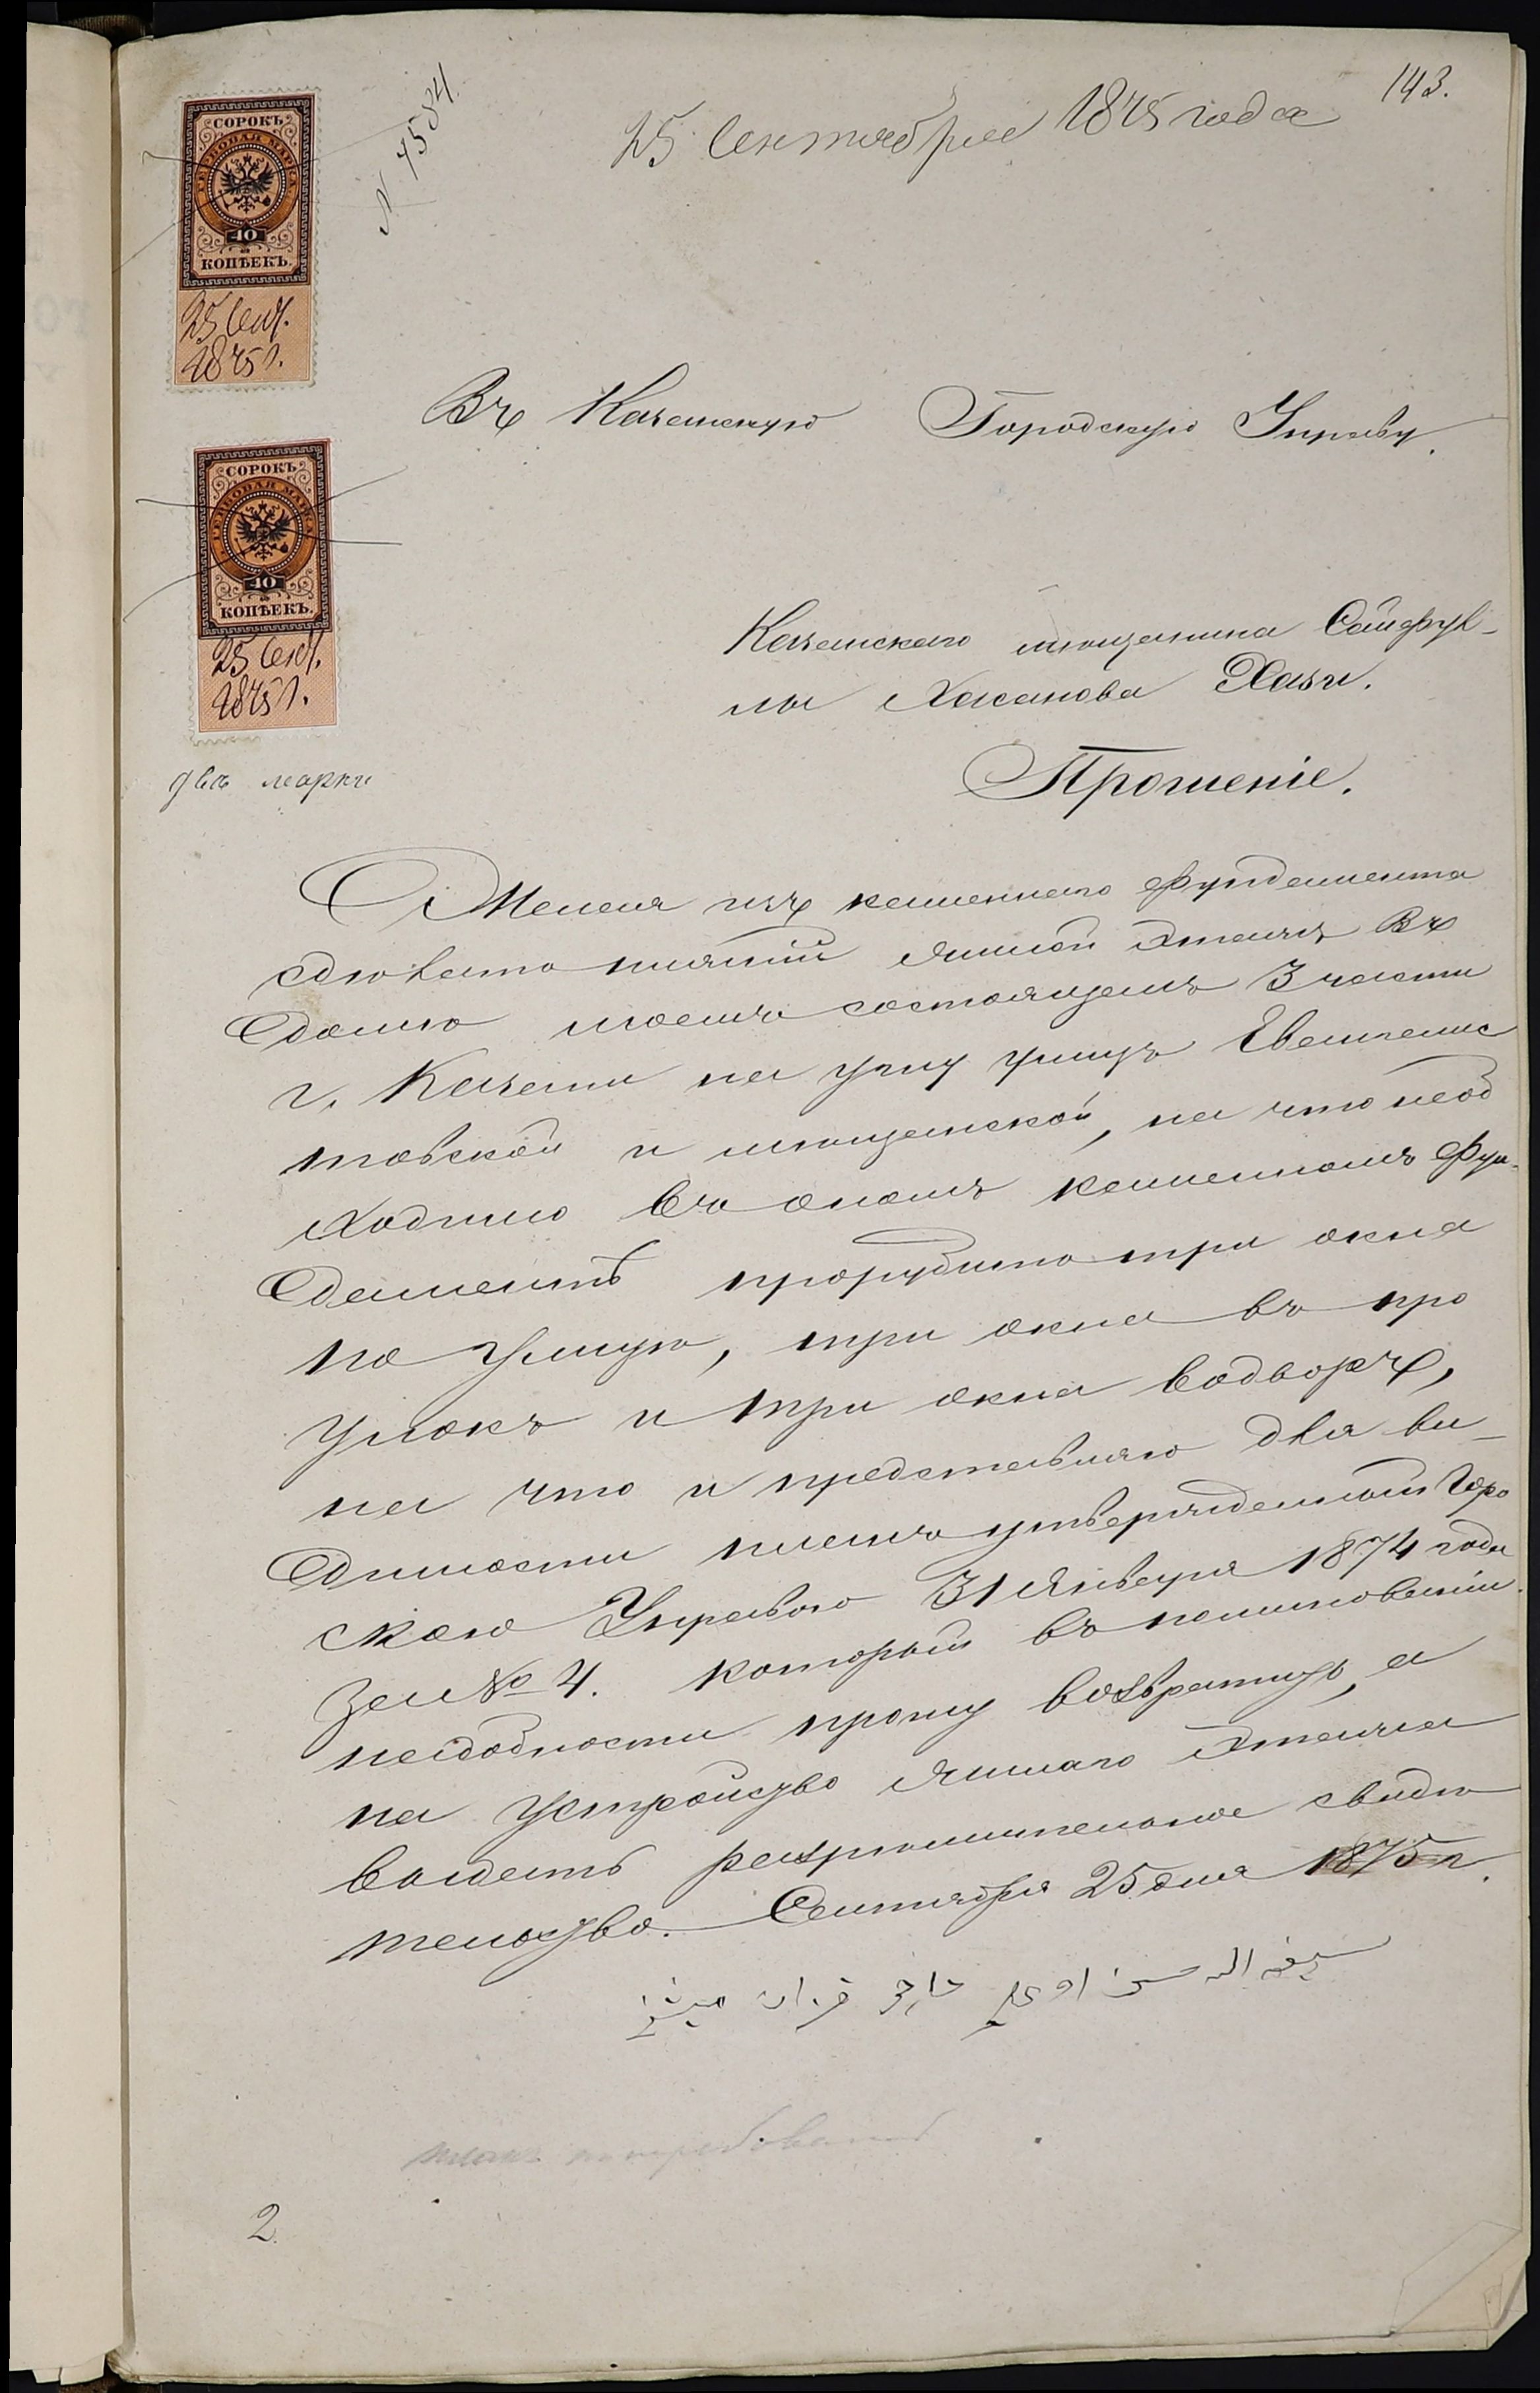 143.
25 Сентября 1875 года
N 7584.
СОРОКЪ
ГЕРБОВАЯ МАРКА
40
КОПѢЕКЪ.
25 Сент.
1875 г.
СОРОКЪ
ГЕРБОВАЯ МАРКА
40
КОПѢЕКЪ.
25 Сент.
1875 г.
двѣ марки
Въ Казанскую Городскую Управу.
Казанскаго мѣщанина Сайфул-
лы Хасанова Хази.
Прошеніе.
Желая изъ каменнаго фундамента
сдѣлать нижній жилой этажъ Въ
домѣ моемъ состоящемъ 3 части
г. Казани на углу улицъ Евангелис
товской и мѣщанской, на что необ
ходимо въ ономъ каменномъ фун-
даментѣ прорубить три окна
на улицу, три окна въ про
улокъ и три окна водворъ,
на что и представляю для ви-
димости планъ утвержденный Горо
скою Управою 31 Января 1874 года
за № 4. который въ поминовеніи
надобности прошу возвратить, а
на устройство жилаго этажа
выдать разрѣшительное свидѣ
тельство. Сентября 25 дня 1875 г.
سيف الله حسن اوغلى حاجى قزان ميشانى
планъ
2